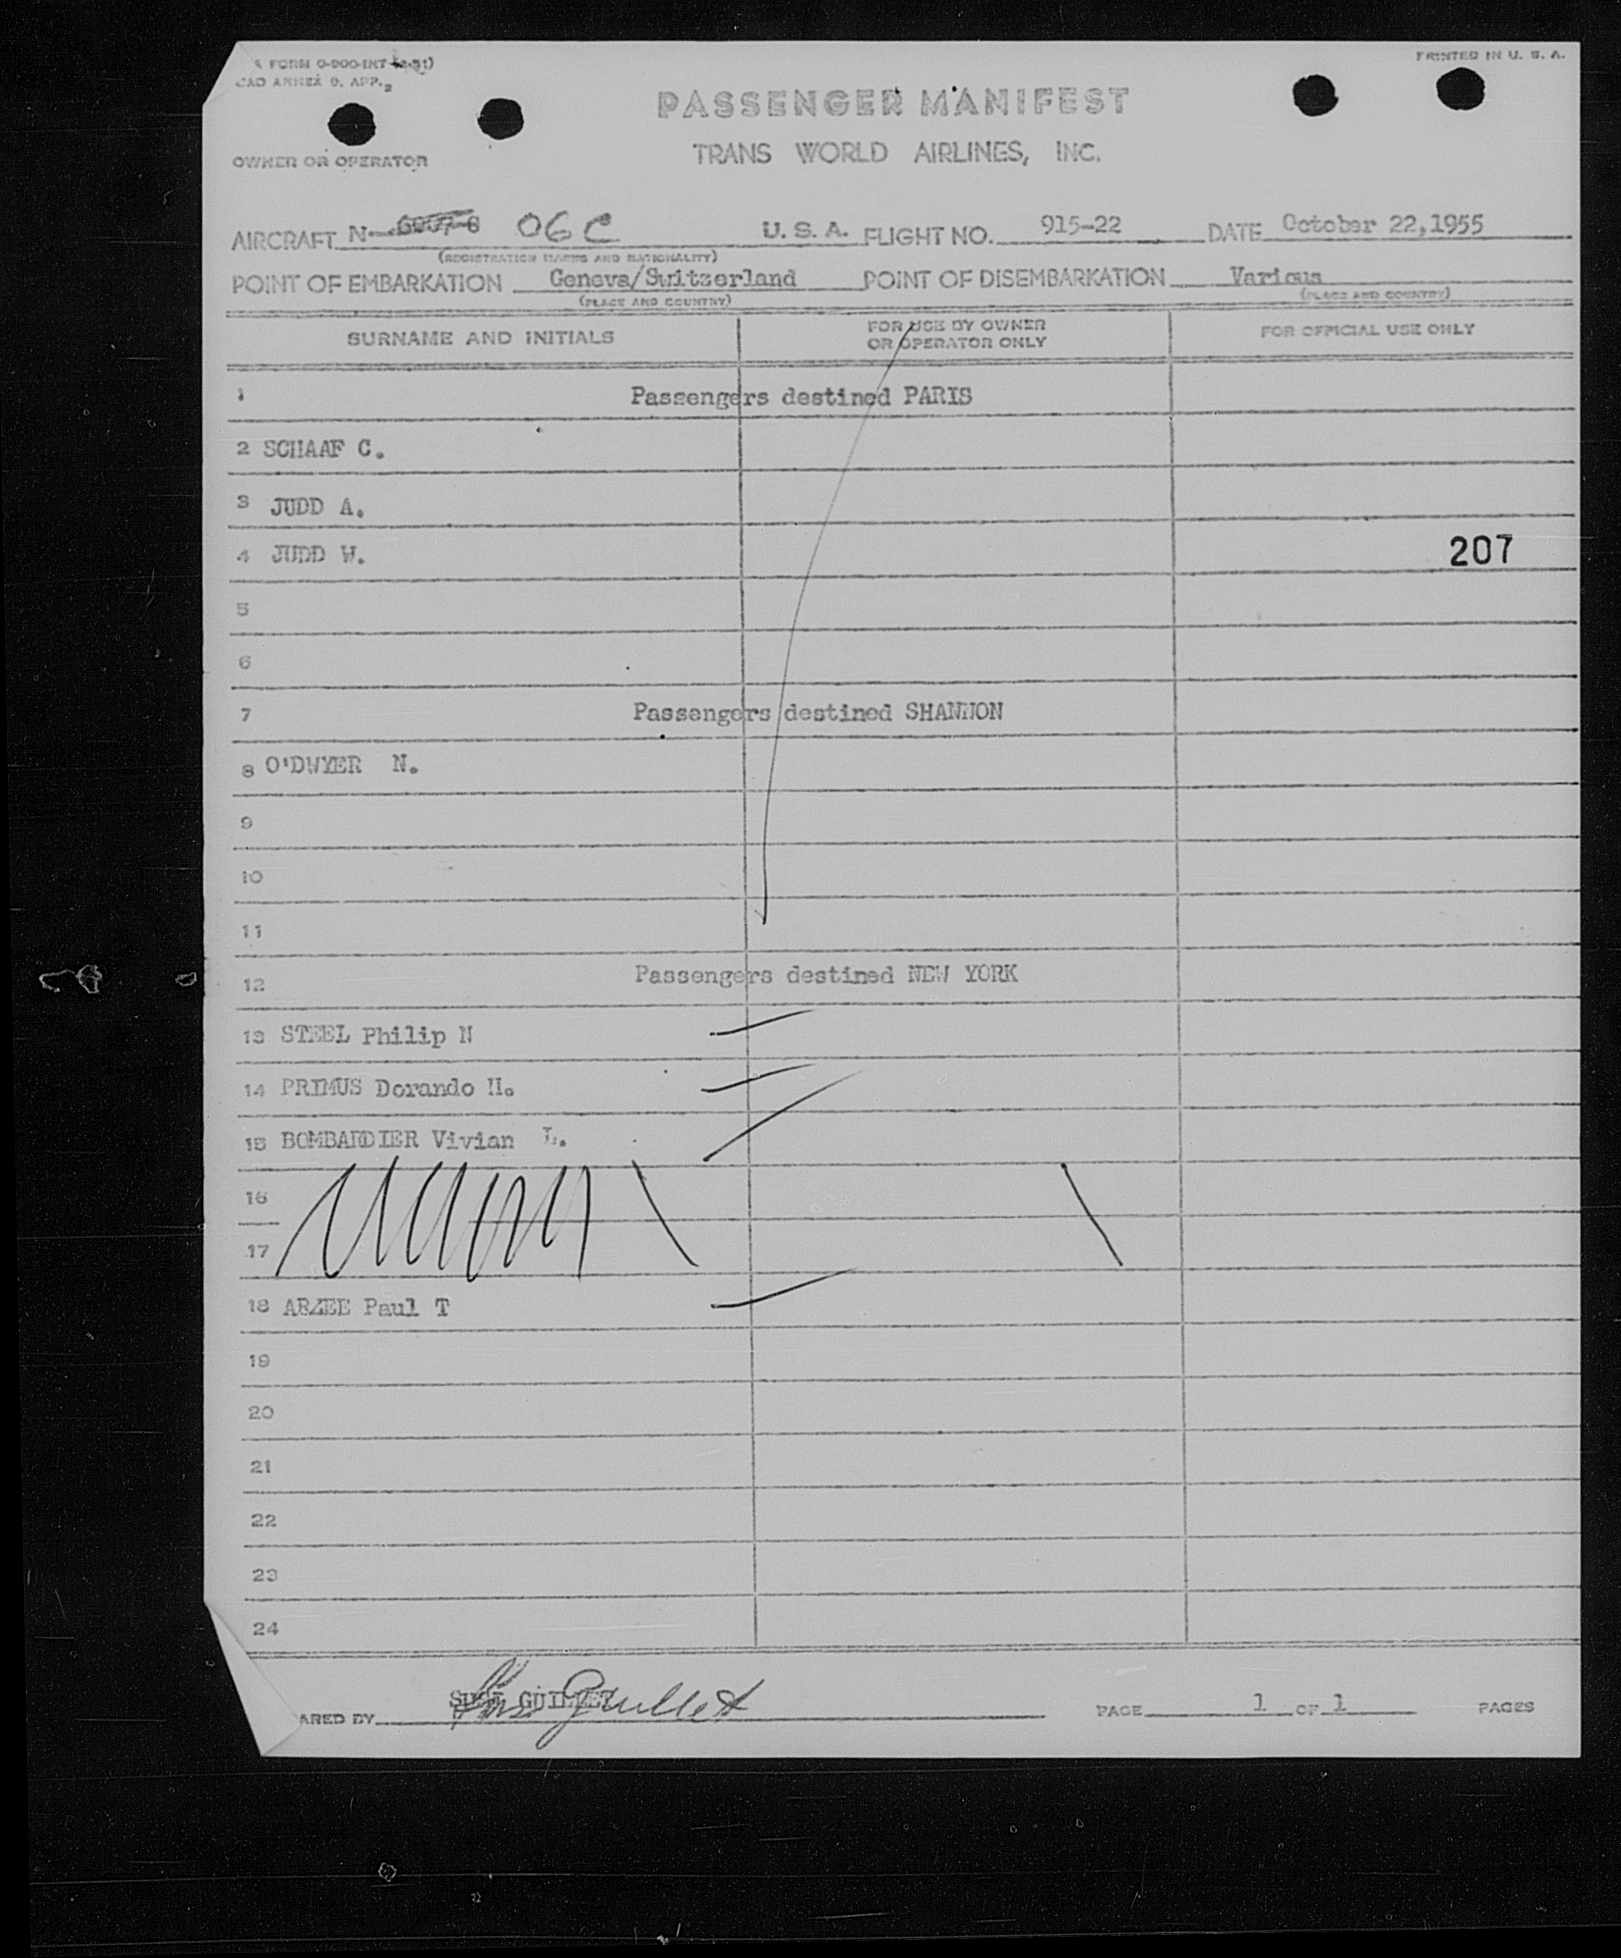 FORM 0-900-INT
CAO ANNEX 9. APP. 2
PRINTED IN U. S. A.
PASSENGER MANIFEST
TRANS WORLD AIRLINES, INC.
OWNER OR OPERATOR
AIRCRAFT N- 06C U. S. A. FLIGHT NO. 915-22 DATE October 22,1955
(REGISTRATION MARKS AND NATIONALITY)
POINT OF EMBARKATION Geneva/Switzerland POINT OF DISEMBARKATION Various
(PLACE AND COUNTRY) (PLACE AND COUNTRY)
SURNAME AND INITIALS FOR USE BY OWNER OR OPERATOR ONLY FOR OFFICIAL USE ONLY
1 Passengers destined PARIS
2 SCHAAF C.
3 JUDD A.
4 JUDD W. 207
5
6
7 Passengers destined SHANNON
8 O'DWYER N.
9
10
11
12 Passengers destined NEW YORK
13 STEEL Philip N
14 PRIMUS Dorando H.
15 BOMBARDIER Vivian L.
16
17
18 ARZEE Paul T
19
20
21
22
23
24
ARED BY GUILLET PAGE 1 OF 1 PAGES